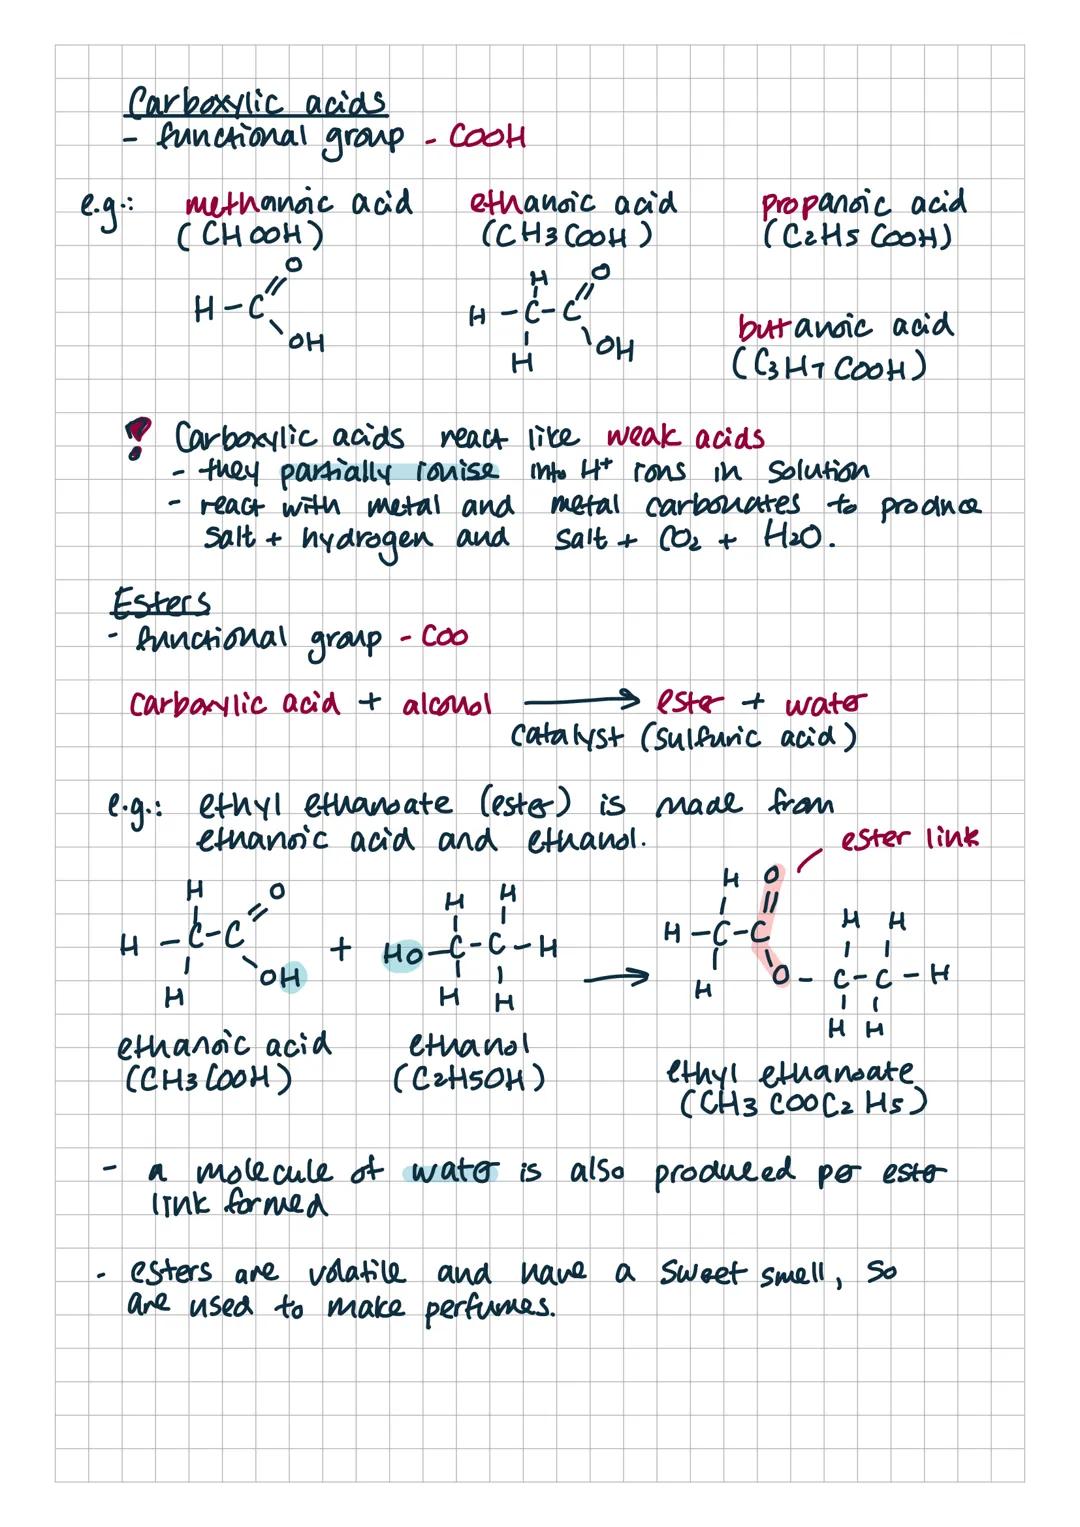 Carboxylic acids
- functional group - COOH
e.g.: methanoic acid ethanoic acid propanoic acid
(CHOOH) (CH3COOH) (C2H5COOH)
O
H-C
OH
H O
H-C-C
H OH
butanoic acid
(C3H7COOH)
? Carboxylic acids react like weak acids
- they partially ionise into H+ ions in solution
- react with metal and metal carbonates to produce
salt + hydrogen and salt + CO2 + H2O.
Esters
- functional group - COO
carboxylic acid + alcohol → ester + water
catalyst (sulfuric acid)
e.g.: ethyl ethanoate (ester) is made from
ethanoic acid and ethanol.
ester link
H O H H H O
H-C-C + HO-C-C-H → H-C-C H H
H OH H H H O-C-C-H
H H
ethanoic acid ethanol
(CH3COOH) (C2H5OH)
ethyl ethanoate
(CH3COOC2H5)
- a molecule of water is also produced per ester
link formed
- esters are volatile and have a sweet smell, so
are used to make perfumes.